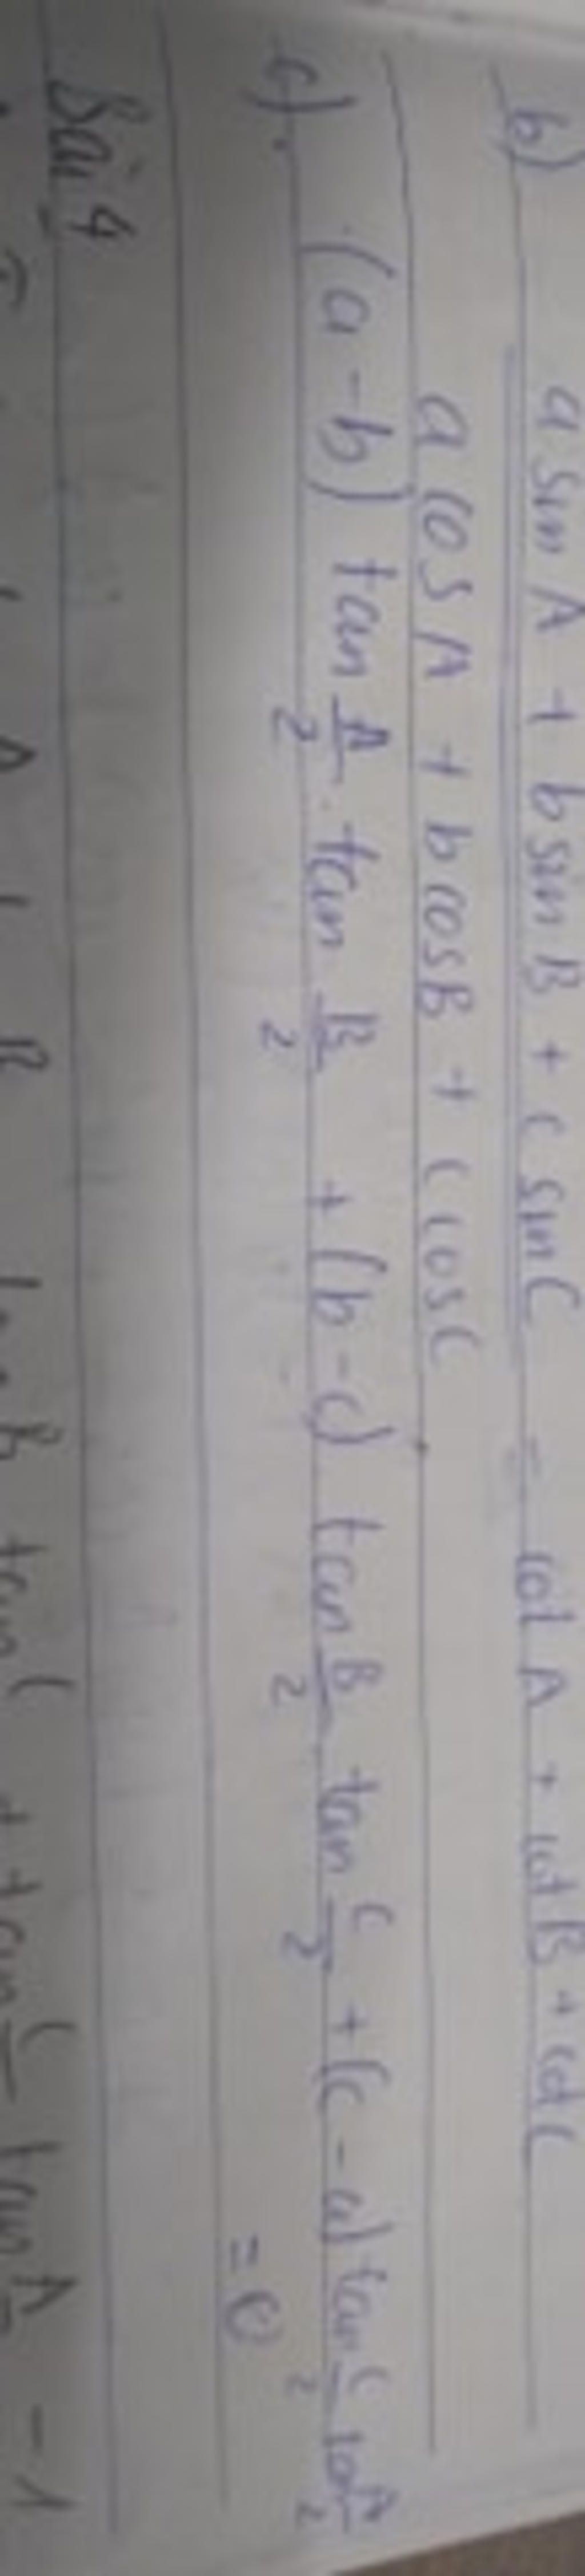 b) a sin A + b sin B + c sin C = cot A + cot B + cot C
a cos A + b cos B + c cos C
c). (a - b) tan A/2 . tan B/2 + (b - c) tan B/2 tan C/2 + (c - a) tan C/2 tan A/2
= 0
Bài 4
tan C + tan C tan A = 1